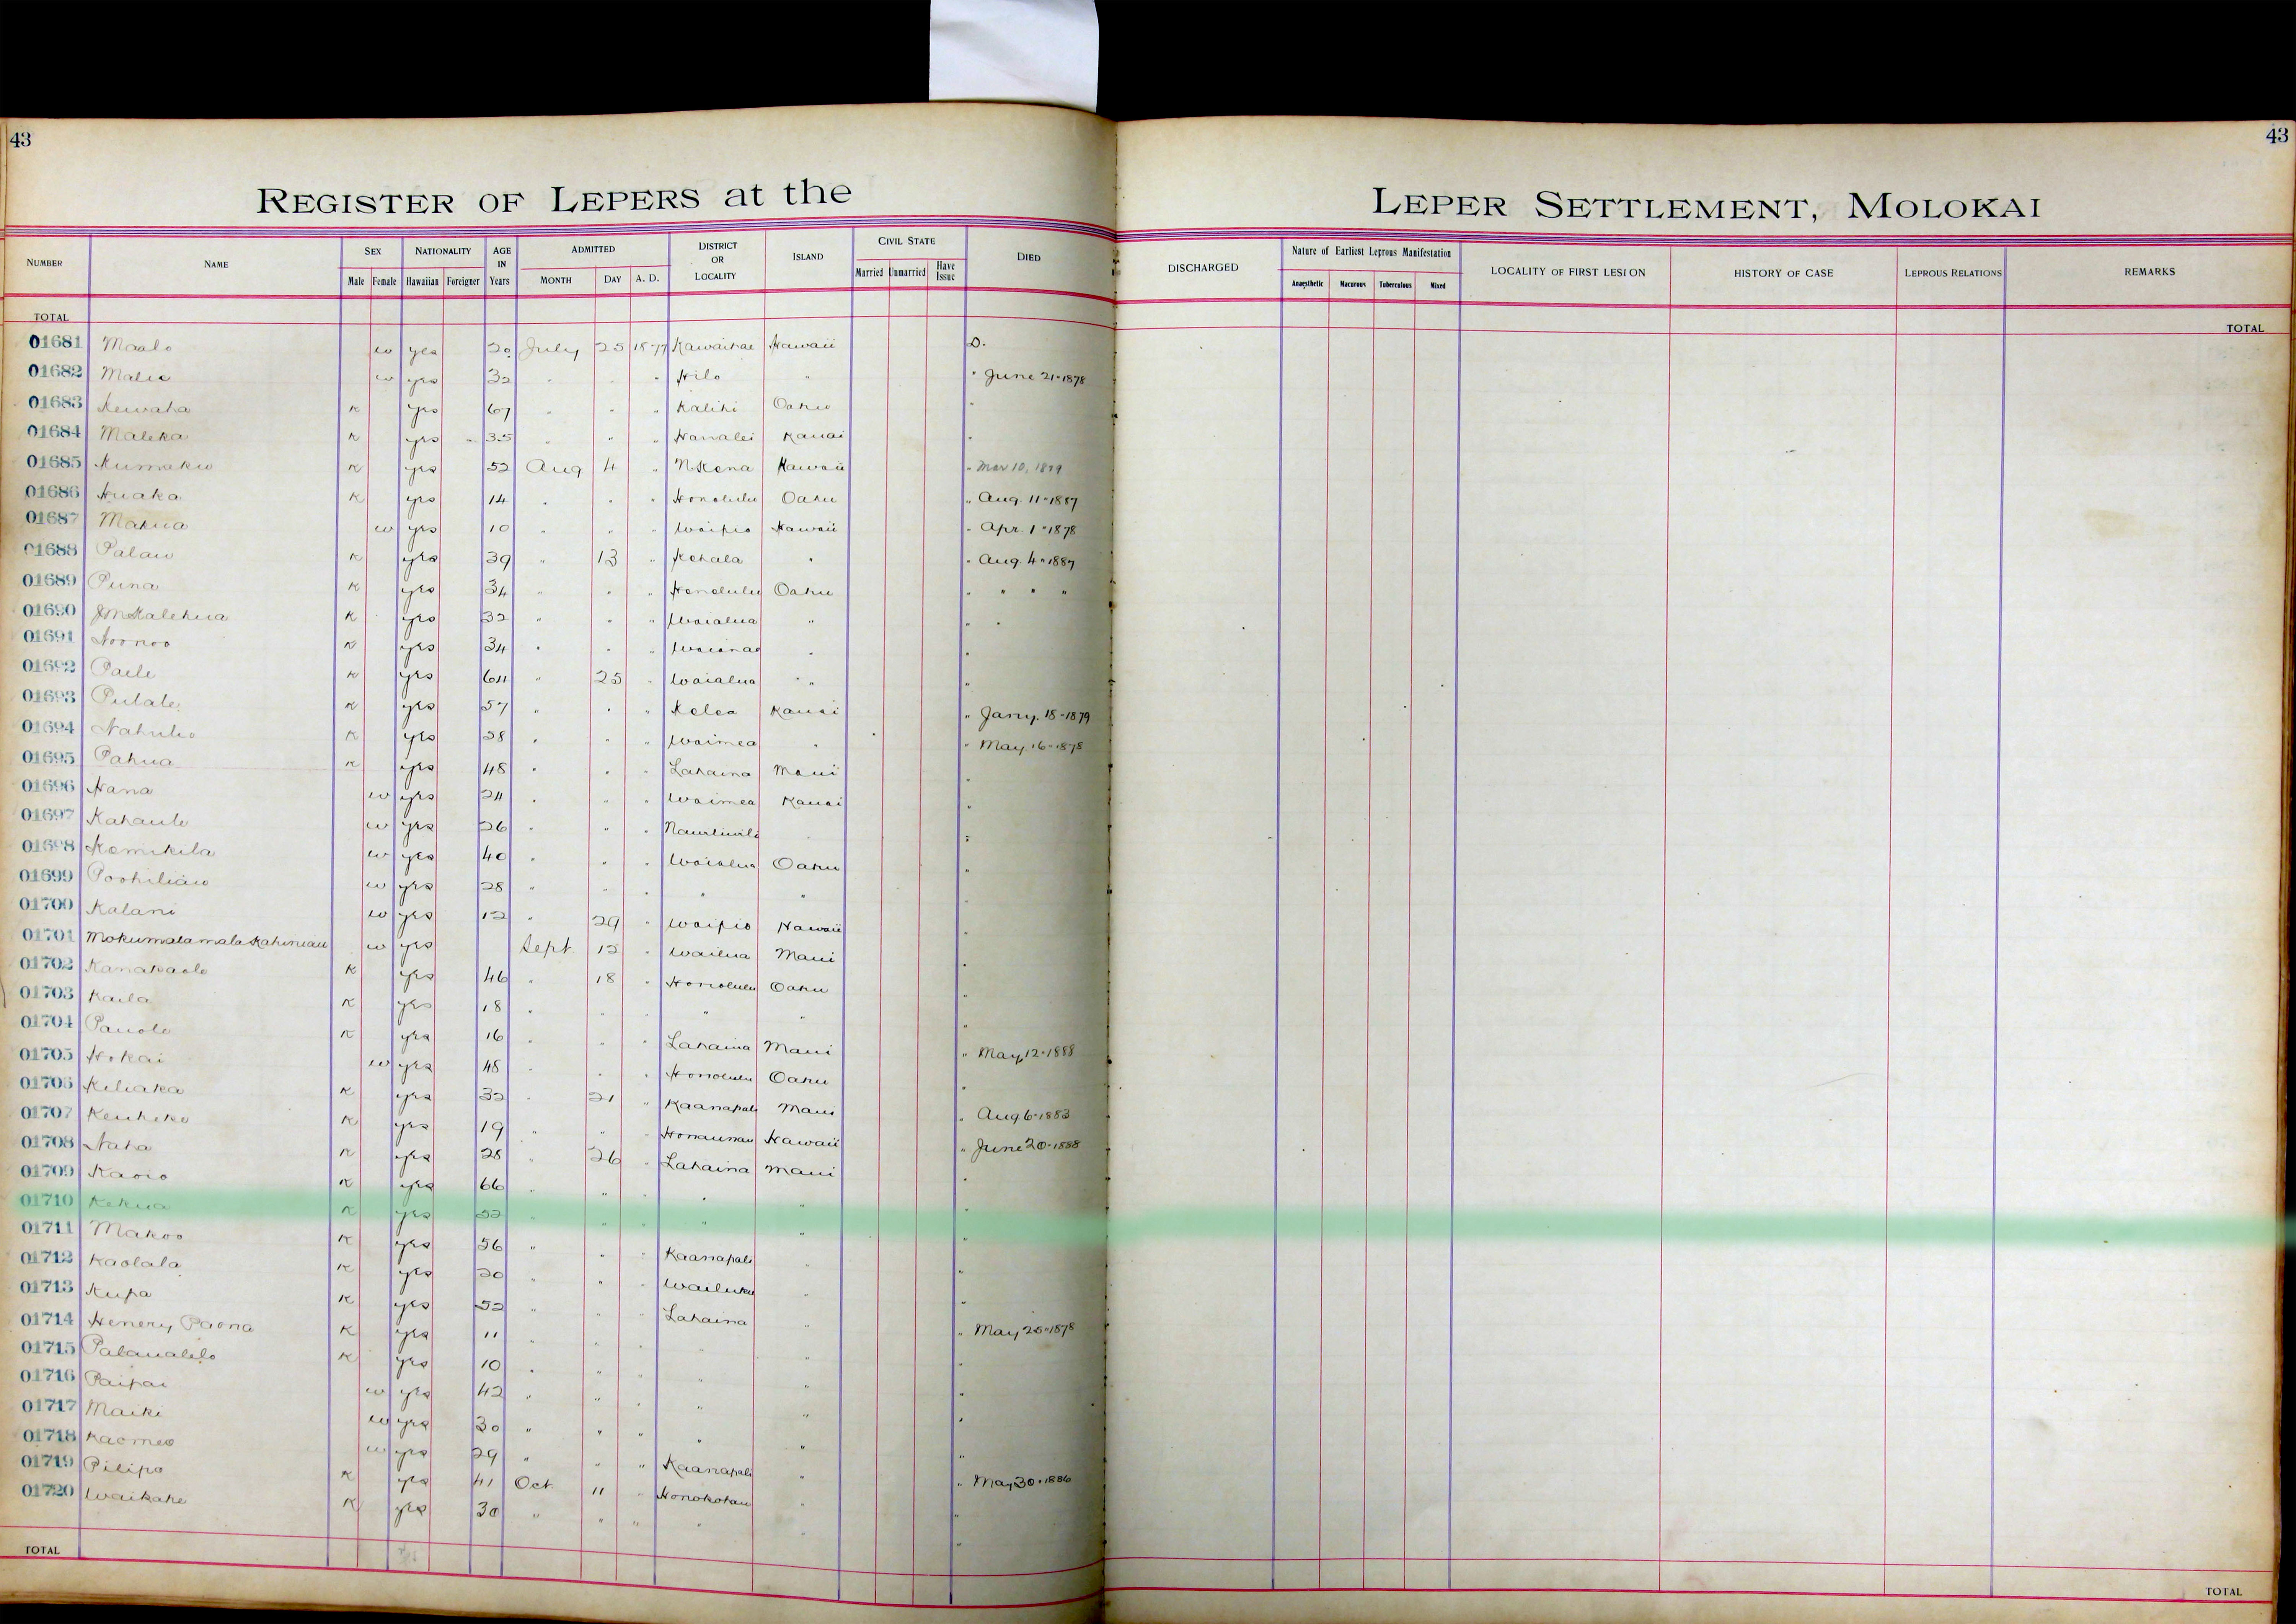 43
43
REGISTER OF LEPERS at the
LEPER SETTLEMENT, MOLOKAI
NUMBER NAME SEX Male Female NATIONALITY Hawaiian Foreigner AGE IN Years ADMITTED MONTH DAY A. D. DISTRICT OR LOCALITY ISLAND CIVIL STATE Married Unmarried Have Issue DIED DISCHARGED Nature of Earliest Leprous Manifestation Anaesthetic Macurous Tuberculous Mixed LOCALITY OF FIRST LESION HISTORY OF CASE LEPROUS RELATIONS REMARKS
TOTAL TOTAL
01681 Maalo w yes 20 July 25 1877 Kawaihae Hawaii D.
01682 Malie w yes 32 " " " Hilo " " June 21-1878
01683 Kewaha K yes 67 " " " Kalihi Oahu "
01684 Maleka K yes 35 " " " Hanalei Kauai "
01685 Kumaku K yes 52 Aug 4 " N Kona Hawaii " Mar 10, 1879
01686 Huaka K yes 14 " " " Honolulu Oahu " Aug. 11-1887
01687 Makua w yes 10 " " " Waipio Hawaii " Apr. 1-1878
01688 Palau K yes 39 " 13 " Kohala " " Aug. 4-1887
01689 Puna K yes 34 " " " Honolulu Oahu " " " "
01690 J M Kalehua K yes 32 " " " Waialua " " "
01691 Hoonoo K yes 34 " " " Waianae " "
01692 Paele K yes 64 " 25 " Waialua " "
01693 Pulale K yes 57 " " " Kolea Kauai " Jany. 18-1879
01694 Nahulio K yes 28 " " " Waimea " " May. 16-1878
01695 Pahua K yes 48 " " " Lahaina Maui "
01696 Hana w yes 24 " " " Waimea Kauai "
01697 Kahaule w yes 26 " " " Nawiliwili "
01698 Komikila w yes 40 " " " Waialua Oahu "
01699 Poohiliau w yes 28 " " " " "
01700 Kalani w yes 12 " 29 " Waipio Hawaii "
01701 Mokumalamala Kahiniau w yes Sept. 12 " Wailua Maui "
01702 Kanakaole K yes 46 " 18 " Honolulu Oahu "
01703 Kaila K yes 18 " " " " " "
01704 Pauole K yes 16 " " " Lahaina Maui " May 12-1888
01705 Hokai w yes 48 " " " Honolulu Oahu "
01706 Keliaka K yes 32 " 21 " Kaanapali Maui " Aug 6-1883
01707 Keuheke K yes 19 " " " Honaunau Hawaii " June 20-1888
01708 Naha K yes 28 " 26 " Lahaina Maui "
01709 Kaoio K yes 66 " " " " " "
01710 Kekua K yes 52 " " " " " "
01711 Makoo K yes 56 " " " Kaanapali " "
01712 Kaolala K yes 20 " " " Wailuku " "
01713 Kupa K yes 52 " " " Lahaina " "
01714 Henery Paona K yes 11 " " " " " " May 25-1878
01715 Palaualelo K yes 10 " " " " " "
01716 Paipai w yes 42 " " " " " "
01717 Maiki w yes 30 " " " " " "
01718 Kaomea w yes 29 " " " Kaanapali " "
01719 Pilipo K yes 41 Oct. 11 " Honokohau " " May 30-1886
01720 Waikahe K yes 30 " " " " " "
TOTAL TOTAL